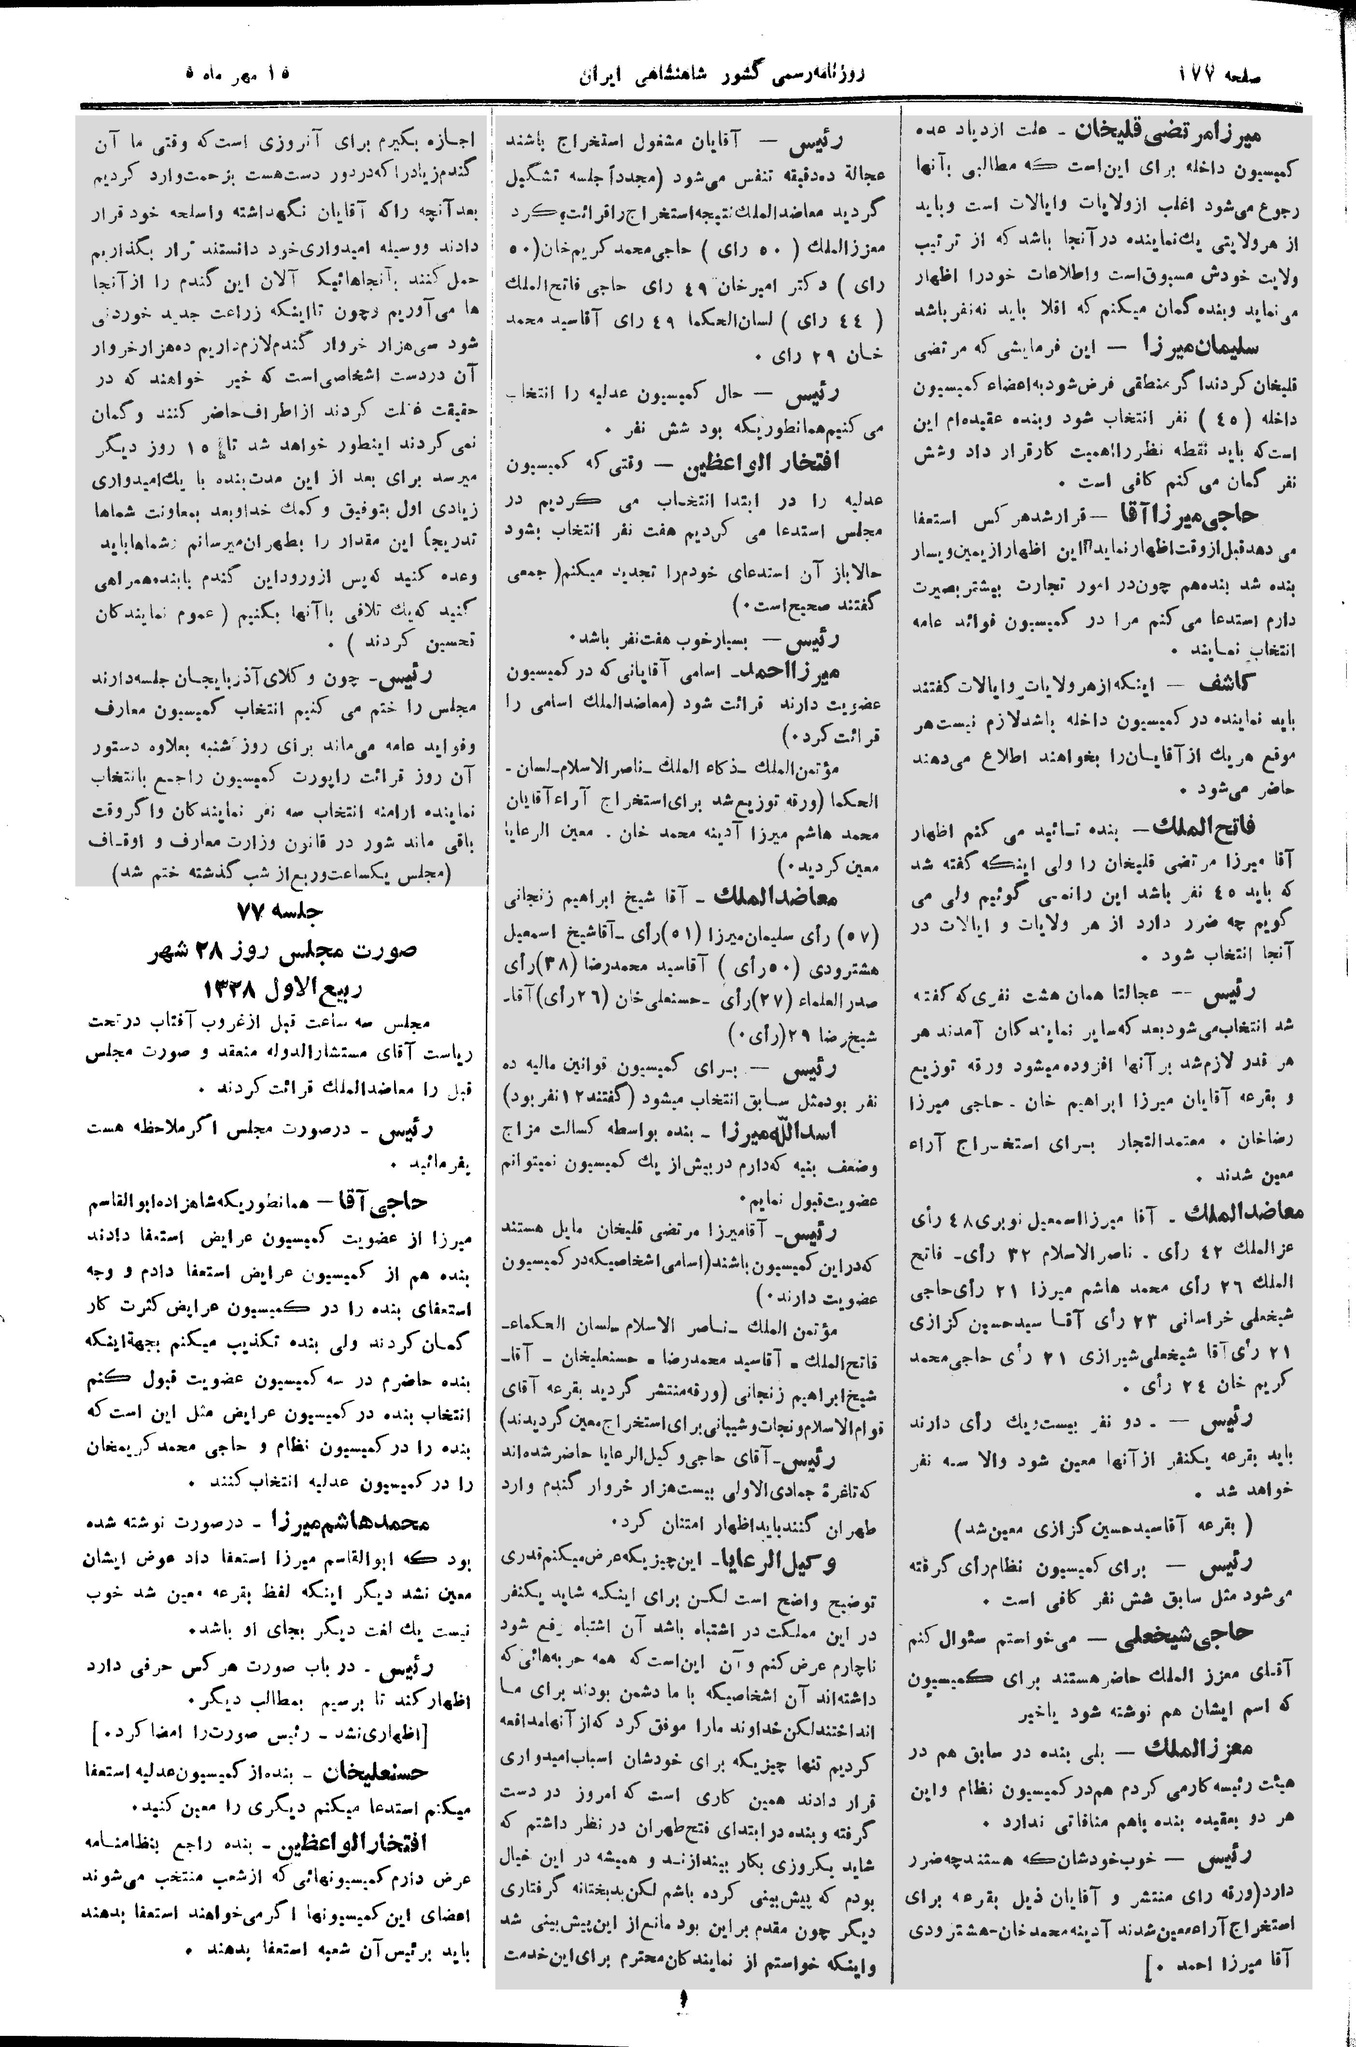 صفحه ۱۷۷
روزنامه رسمی کشور شاهنشاهی ایران
۱۵ مهر ماه ۵
میرزا مرتضی قلیخان ـ علت ازدیاد عده
کمیسیون داخله برای این است که مطالبی بآنها
رجوع می‌شود اغلب از ولایات و ایالات است و باید
از هر ولایتی یك نماینده در آنجا باشد که از ترتیب
ولایت خودش مسبوق است و اطلاعات خود را اظهار
می نماید و بنده گمان میکنم که اقلا باید نه نفر باشد
سلیمان میرزا — این فرمایشی که مرتضی
قلیخان کردند اگر منطقی فرض شود به اعضاء کمیسیون
داخله (۴۵) نفر انتخاب شود و بنده عقیده‌ام این
است که باید نقطه نظر را اهمیت کار قرار داد و شش
نفر گمان می کنم کافی است .
حاجی میرزا آقا — قرار شد هر کس استعفا
می دهد قبل از وقت اظهار نماید این اظهار از یمین و یسار
بنده شد بنده هم چون در امور تجارت بیشتر بصیرت
دارم استدعا می کنم مرا در کمیسیون فوائد عامه
انتخاب نمایند .
کاشف — اینکه از هر ولایات و ایالات گفتند
باید نماینده در کمیسیون داخله باشد لازم نیست هر
موقع هر یك از آقایان را بخواهند اطلاع می دهند
حاضر می شود .
فاتح الملك — بنده تائید می کنم اظهار
آقا میرزا مرتضی قلیخان را ولی اینکه گفته شد
که باید ۴۵ نفر باشد این را نمی گوئیم ولی می
گویم چه ضرر دارد از هر ولایات و ایالات در
آنجا انتخاب شود .
رئیس — عجالتا همان هشت نفری که گفته
شد انتخاب می شود بعد که سایر نمایندگان آمدند هر
هر قدر لازم شد بر آنها افزوده میشود ورقه توزیع
و بقرعه آقایان میرزا ابراهیم خان ـ حاجی میرزا
رضاخان . معتمدالتجار برای استخراج آراء
معین شدند .
معاضدالملك ـ آقا میرزا اسمعیل نوبری ۴۸ رأی
عزالملك ۴۲ رأی ـ ناصرالاسلام ۳۲ رأی ـ فاتح
الملك ۲۶ رأی محمد هاشم میرزا ۲۱ رأی حاجی
شیخعلی خراسانی ۲۳ رأی آقا سید حسین کزازی
۲۱ رأی آقا شیخعلی شیرازی ۲۱ رأی حاجی محمد
کریم خان ۲۴ رأی .
رئیس — . دو نفر بیست و یك رأی دارند
باید بقرعه یکنفر از آنها معین شود والا سه نفر
خواهد شد .
( بقرعه آقا سید حسین کزازی معین شد)
رئیس — برای کمیسیون نظام رأی گرفته
می شود مثل سابق شش نفر کافی است .
حاجی شیخعلی — می خواستم سئوال کنم
آقای معزز الملك حاضر هستند برای کمیسیون
که اسم ایشان هم نوشته شود یا خیر
معزز الملك — بلی بنده در سابق هم در
هیئت رئیسه کار می کردم هم در کمیسیون نظام و این
هر دو بعقیده بنده باهم منافاتی ندارد .
رئیس — خوب خودشان که هستند چه ضرر
دارد (ورقه رای منتشر و آقایان ذیل بقرعه برای
استخراج آراء معین شدند آدینه محمد خان ـ هشترودی
آقا میرزا احمد . ]
رئیس — آقایان مشغول استخراج باشند
عجالة ده دقیقه تنفس می شود (مجدداً جلسه تشکیل
گردید معاضدالملك نتیجه استخراج را قرائت بکرد
معزز الملك ( ۵۰ رای ) حاجی محمد کریم خان (۵۰
رای ) دکتر امیرخان ۴۹ رای حاجی فاتح الملك
( ۴۴ رای ) لسان الحکما ۴۹ رای آقا سید محمد
خان ۲۹ رای .
رئیس — حال کمیسیون عدلیه را انتخاب
می کنیم همانطوریکه بود شش نفر .
افتخار الواعظین — وقتی که کمیسیون
عدلیه را در ابتدا انتخاب می کردیم در
مجلس استدعا می کردیم هفت نفر انتخاب بشود
حالا باز آن استدعای خودم را تجدید میکنم (جمعی
گفتند صحیح است .)
رئیس — بسیار خوب هفت نفر باشد.
میرزا احمد ـ اسامی آقایانی که در کمیسیون
عضویت دارند قرائت شود (معاضدالملك اسامی را
قرائت کرد .)
مؤتمن الملك ـ ذکاء الملك ـ ناصر الاسلام ـ لسان ـ
الحکما (ورقه توزیع شد برای استخراج آراء آقایان
محمد هاشم میرزا آدینه محمد خان . معین الرعایا
معین کردید .)
معاضدالملك ـ آقا شیخ ابراهیم زنجانی
(۵۷) رأی سلیمان میرزا (۵۱) رأی ـ آقا شیخ اسمعیل
هشترودی (۵۰ رأی ) آقا سید محمدرضا (۳۸) رأی
صدرالعلماء (۲۷) رأی ـ حسنعلی خان (۲۶ رأی) آقا ـ
شیخ رضا ۲۹ (رأی .)
رئیس — برای کمیسیون قوانین مالیه ده
نفر بود مثل سابق انتخاب میشود (گفتند ۱۲ نفر بود)
اسدالله میرزا ـ بنده بواسطه کسالت مزاج
وضعف بنیه که دارم در بیش از یك کمیسیون نمیتوانم
عضویت قبول نمایم.
رئیس ـ آقا میرزا مرتضی قلیخان مایل هستند
که در این کمیسیون باشند (اسامی اشخاصیکه در کمیسیون
عضویت دارند .)
مؤتمن الملك ـ ناصر الاسلام ـ لسان الحکماء ـ
فاتح الملك . آقا سید محمدرضا . حسنعلیخان ـ آقا ـ
شیخ ابراهیم زنجانی (ورقه منتشر گردید بقرعه آقای
قوام الاسلام و نجات و شیبانی برای استخراج معین گردیدند)
رئیس ـ آقای حاجی وکیل الرعایا حاضر شده‌اند
که تا غرۀ جمادی الاولی بیست هزار خروار گندم وارد
طهران کنند باید اظهار امتنان کرد.
وکیل الرعایا ـ این چیزیکه عرض میکنم قدری
توضیح واضح است لکن برای اینکه شاید یکنفر
در این مملکت در اشتباه باشد آن اشتباه رفع شود
ناچارم عرض کنم و آن این است که همه حربه‌هائی که
داشته‌اند آن اشخاصیکه با ما دشمن بودند برای ما
انداختند لکن خداوند ما را موفق کرد که از آنها مدافعه
کردیم تنها چیزیکه برای خودشان اسباب امیدواری
قرار دادند همین کاری است که امروز در دست
گرفته و بنده در ابتدای فتح طهران در نظر داشتم که
شاید یکروزی بکار بیندازند و همیشه در این خیال
بودم که پیش بینی کرده باشم لکن بدبختانه گرفتاری
دیگر چون مقدم بر این بود مانع از این پیش بینی شد
و اینکه خواستم از نمایندگان محترم برای این خدمت
اجازه بگیرم برای آنروزی است که وقتی ما آن
گندم زیاد را که در دور دست هست بزحمت وارد کردیم
بعد آنچه را که آقایان نگهداشته و اسلحه خود قرار
دادند و وسیله امیدواری خود دانستند قرار بگذاریم
حمل کنند بآنجاهائیکه آلان این گندم را از آنجا
ها می آوریم و چون تا اینکه زراعت جدید خوردنی
شود سی هزار خروار گندم لازم داریم ده هزار خروار
آن در دست اشخاصی است که خیر خواهند که در
حقیقت غفلت کردند از اطراف حاضر کنند و گمان
نمی کردند اینطور خواهد شد تا ۱۵ روز دیگر
میرسد برای بعد از این مدت بنده با یك امیدواری
زیادی اول بتوفیق و کمك خدا و بعد بمعاونت شماها
تدریجاً این مقدار را بطهران میرسانم و شماها باید
وعده کنید که پس از ورود این گندم با بنده همراهی
کنید که یك تلافی با آنها بکنیم ( عموم نمایندگان
تحسین کردند ) .
رئیس ـ چون وکلای آذربایجان جلسه دارند
مجلس را ختم می کنیم انتخاب کمیسیون معارف
و فواید عامه می‌ماند برای روز شنبه بعلاوه دستور
آن روز قرائت راپورت کمیسیون راجع بانتخاب
نماینده ارامنه انتخاب سه نفر نمایندگان و اگر وقت
باقی ماند شور در قانون وزارت معارف و اوقاف
(مجلس یکساعت و ربع از شب گذشته ختم شد)
جلسه ۷۷
صورت مجلس روز ۲۸ شهر
ربیع الاول ۱۳۲۸
مجلس سه ساعت قبل از غروب آفتاب در تحت
ریاست آقای مستشارالدوله منعقد و صورت مجلس
قبل را معاضدالملك قرائت کردند .
رئیس ـ در صورت مجلس اگر ملاحظه هست
بفرمائید .
حاجی آقا — همانطوریکه شاهزاده ابوالقاسم
میرزا از عضویت کمیسیون عرایض استعفا دادند
بنده هم از کمیسیون عرایض استعفا دادم و وجه
استعفای بنده را در کمیسیون عرایض کثرت کار
گمان کردند ولی بنده تکذیب میکنم بجهة اینکه
بنده حاضرم در سه کمیسیون عضویت قبول کنم
انتخاب بنده در کمیسیون عرایض مثل این است که
بنده را در کمیسیون نظام و حاجی محمد کریمخان
را در کمیسیون عدلیه انتخاب کنند .
محمد هاشم میرزا ـ در صورت نوشته شده
بود که ابوالقاسم میرزا استعفا داد عوض ایشان
معین نشد دیگر اینکه لفظ بقرعه معین شد خوب
نیست یك لغت دیگر بجای او باشد.
رئیس ـ در باب صورت هر کس حرفی دارد
اظهار کند تا برسیم بمطالب دیگر.
[اظهاری نشد ـ رئیس صورت را امضا کرد .]
حسنعلیخان ـ بنده از کمیسیون عدلیه استعفا
میکنم استدعا میکنم دیگری را معین کنید.
افتخار الواعظین ـ بنده راجع بنظامنامه
عرض دارم کمیسیونهائی که از شعب منتخب می شوند
اعضای این کمیسیونها اگر می خواهند استعفا بدهند
باید برئیس آن شعبه استعفا بدهند .